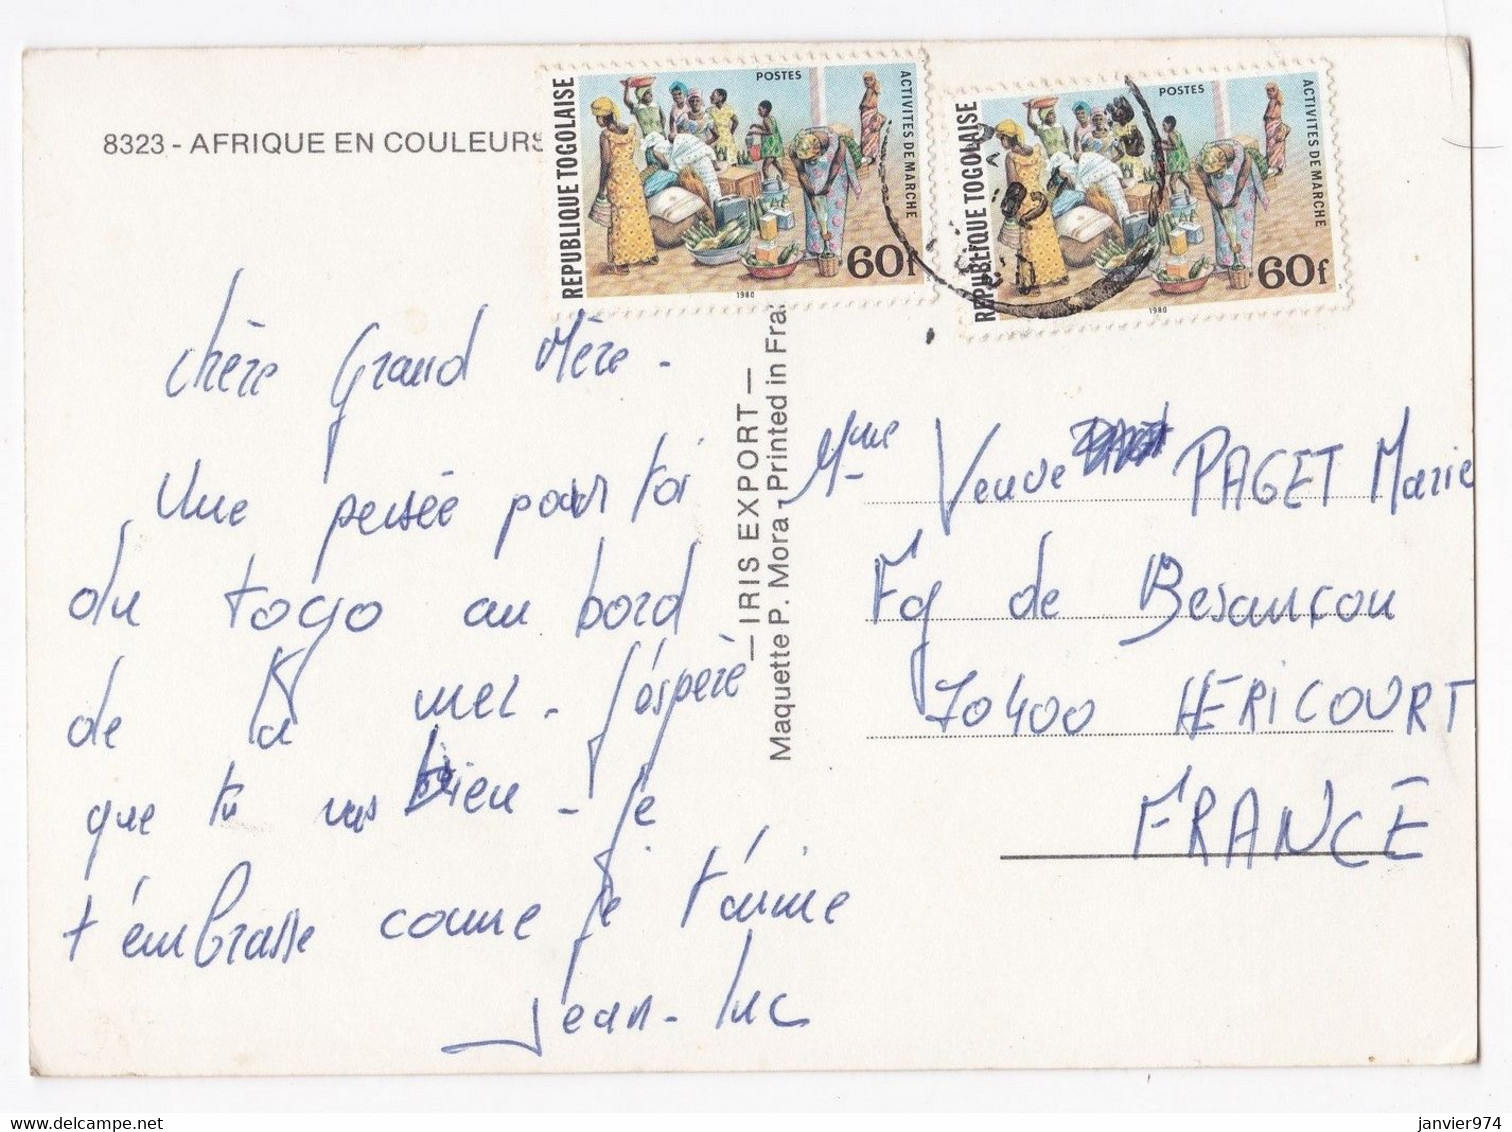 8323 - AFRIQUE EN COULEURS
REPUBLIQUE TOGOLAISE
POSTES
ACTIVITES DE MARCHE
60f
1980
REPUBLIQUE TOGOLAISE
POSTES
ACTIVITES DE MARCHE
60f
1980
82
Chère Grand Mère -
Une pensée pour toi
du togo au bord
de la mer - J'espère
que tu vas bien - je
t'embrasse comme je t'aime
Jean-Luc
— IRIS EXPORT —
Maquette P. Mora - Printed in Fra
Mme Veuve PAGET Marie
Fg de Besançon
70400 HERICOURT
FRANCE
delcampe.net
janvier974